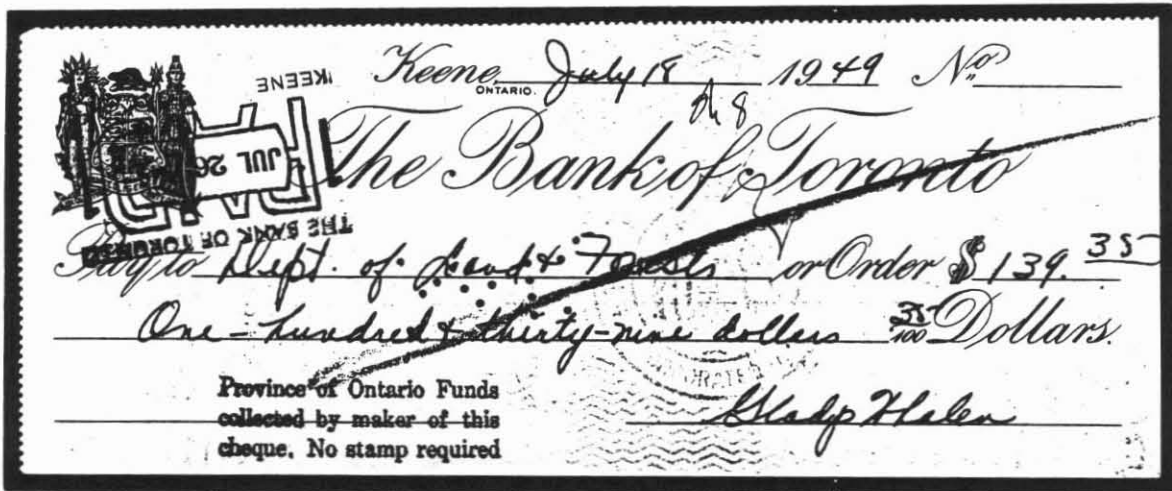 Keene, July 18 1949 No
ONTARIO.
KEENE
PAID
JUL 26
THE BANK OF TORONTO
The Bank of Toronto
Pay to Dept. of Land & Forests or Order $ 139. 35
One-hundred & thirty-nine dollars 35/100 Dollars.
Province of Ontario Funds
collected by maker of this
cheque. No stamp required
Gladys Whalen